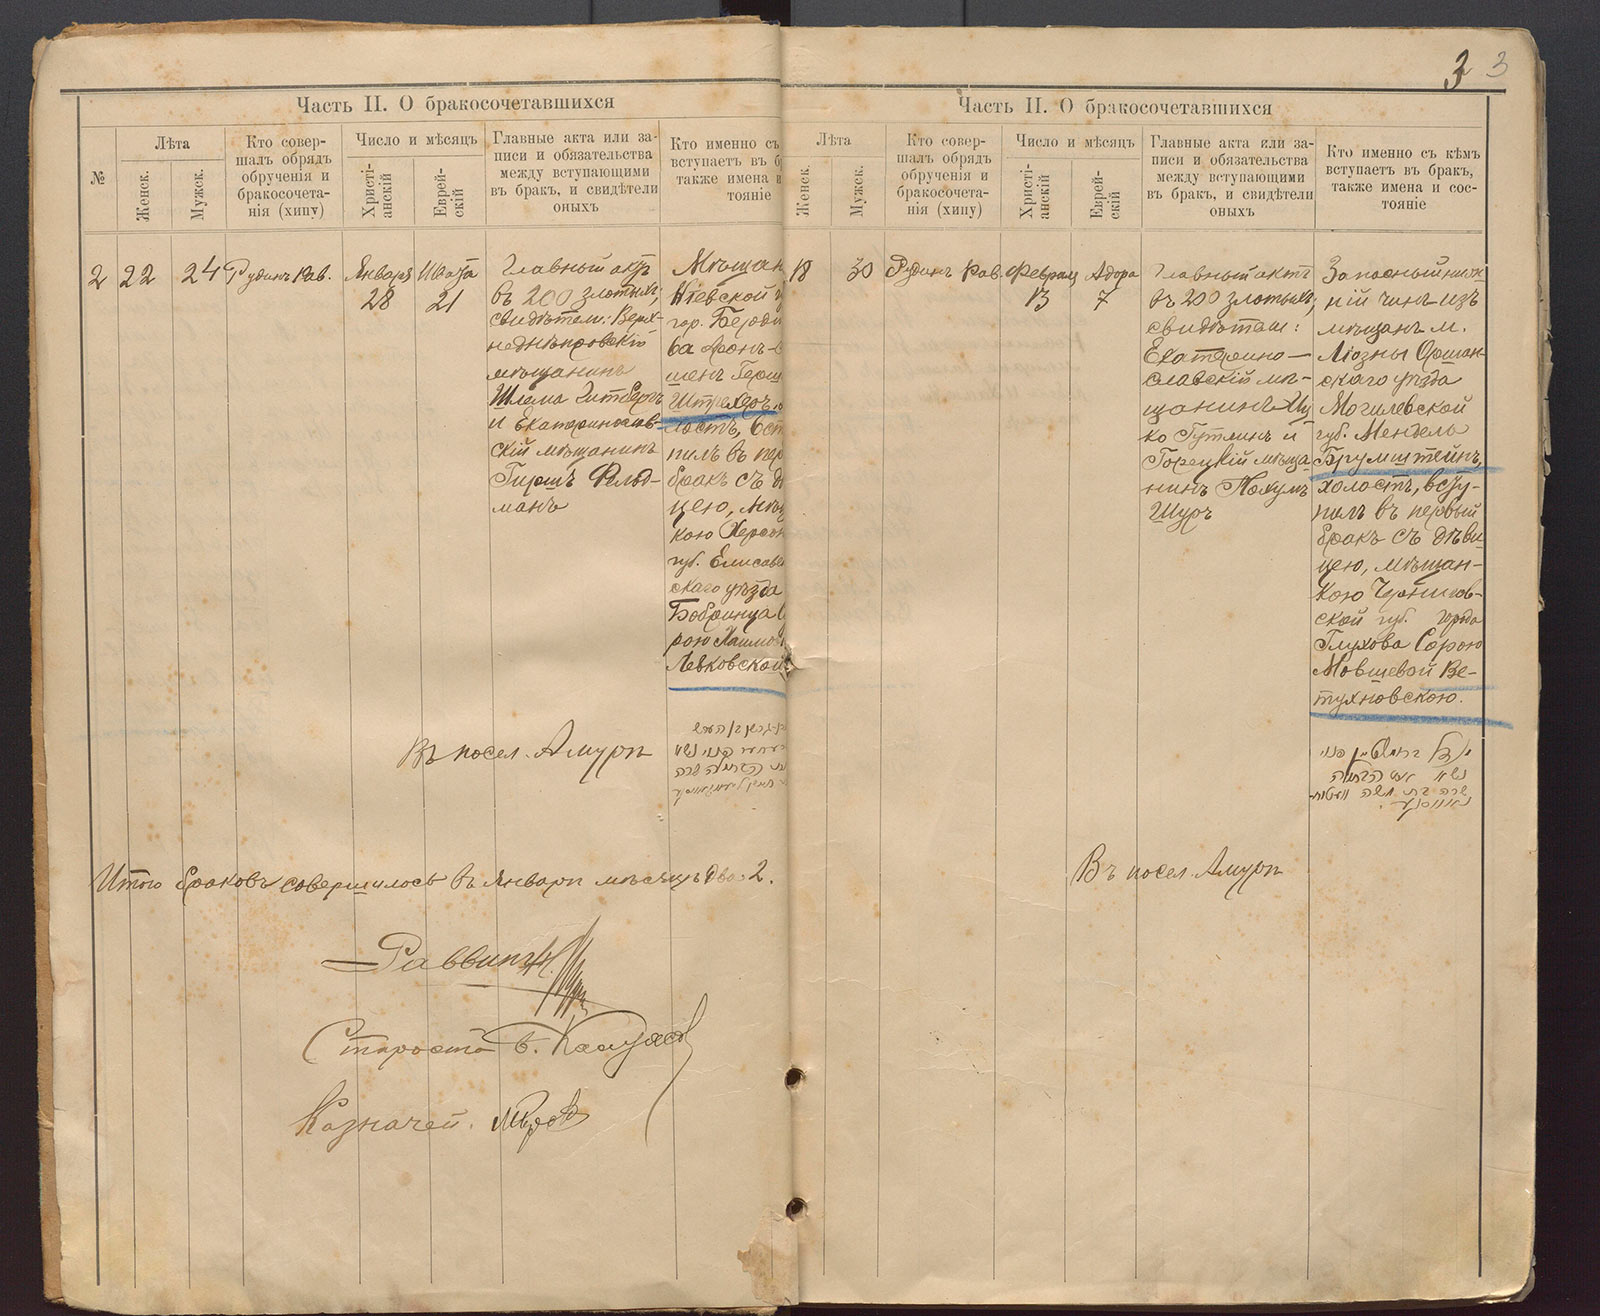 3 3
Часть II. О бракосочетавшихся
№
Лѣта
Женск.
Мужск.
Кто совер-
шалъ обрядъ
обрученія и
бракосочета-
нія (хипу)
Число и мѣсяцъ
Христі-
анскій
Еврей-
скій
Главные акта или за-
писи и обязательства
между вступающими
въ бракъ, и свидѣтели
оныхъ
Кто именно съ
вступаетъ въ б
также имена и
тояніе
2
22
24
Рудинъ Рав.
Января
28
Швата
21
Главный актъ
въ 200 злотыхъ;
свидѣтели: Верх-
неднѣпровскій
мѣщанинъ
Шлема
и Екатеринослав-
скій мѣщанинъ
Гиршъ Фельд-
манъ
Мѣщан
Кіевской г
гор. Берди
ва Аронъ-
шенъ Герш
Штрехеръ
лостъ, вст
пилъ въ пер
бракъ съ дѣ
цею, мѣщ
кою Херсон
губ. Елисаве
скаго уѣзда
Бобринца С
рою Хаимов
Левковской
Въ посел. Амуръ
Итого браковъ совершилось въ Январѣ мѣсяцѣ два 2.
Раввинъ
Староста Б.
Казначей.
Часть II. О бракосочетавшихся
Лѣта
Женск.
Мужск.
Кто совер-
шалъ обрядъ
обрученія и
бракосочета-
нія (хипу)
Число и мѣсяцъ
Христі-
анскій
Еврей-
скій
Главные акта или за-
писи и обязательства
между вступающими
въ бракъ, и свидѣтели
оныхъ
Кто именно съ кѣмъ
вступаетъ въ бракъ,
также имена и сос-
тояніе
18
30
Рудинъ Рав.
Февраля
13
Адора
7
Главный актъ
въ 200 злотыхъ;
свидѣтели:
Екатерино-
славскій мѣ-
щанинъ Иц
ко Гутлинъ и
Горецкій мѣща-
нинъ Нохумъ
Шуръ
Запасный ниж
ній чинъ изъ
мѣщанъ м.
Ліозны Оршан-
скаго уѣзда
Могилевской
губ. Мендель
Брумштейнъ,
холостъ, всту-
пилъ въ первый
бракъ съ дѣви-
цею, мѣщан-
кою Чернигов-
ской губ. города
Глухова Сорою
Мовшевой Ве-
тухновскою.
שרה בת משה
Въ посел. Амуръ